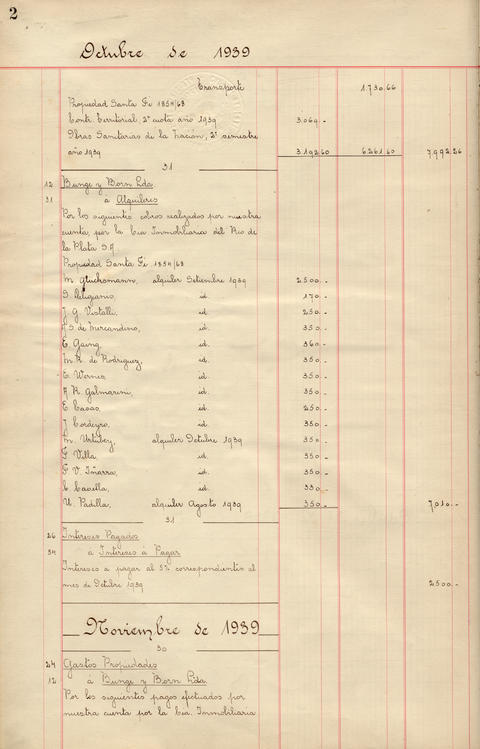 2
Octubre de 1939
Transporte 1.730.66
Propiedad Santa Fe 1854/68
Contr. Territorial 2ª cuota año 1939 3.069.-
Obras Sanitarias de la Nación, 2º semestre
año 1939 3.192.60 6.261.60 7.992.26
31
12 Bunge y Born Lda.
31 a Alquileres
Por los siguientes cobros realizados por nuestra
cuenta, por la Cia Inmobiliaria del Rio de
la Plata S.A.
Propiedad Santa Fe 1854/68
M. Glucksmann, alquiler Setiembre 1939 2500.-
S. id. 170.-
J. G. Vistalli, id. 250.-
S. de Mercandino, id. 350.-
E. Gaing, id. 360.-
M. R. de Rodriguez, id. 350.-
E. Wernes, id. 350.-
A. R. Galmarini, id. 350.-
E. Casas, id. 250.-
J. Cordeyro, id. 350.-
M. Urtubey, alquiler Octubre 1939 350.-
F. Villa id. 350.-
F. V. Iñarra, id. 350.-
C. Casella, id. 330.-
U. Padilla, alquiler Agosto 1939 350.- 7010.-
31
26 Intereses Pagados
34 a Intereses á Pagar
Intereses a pagar al 5% correspondientes al
mes de Octubre 1939 2500.-
Noviembre de 1939
30
24 Gastos Propiedades
12 á Bunge y Born Lda.
Por los siguientes pagos efectuados por
nuestra cuenta por la Cia. Inmobiliaria